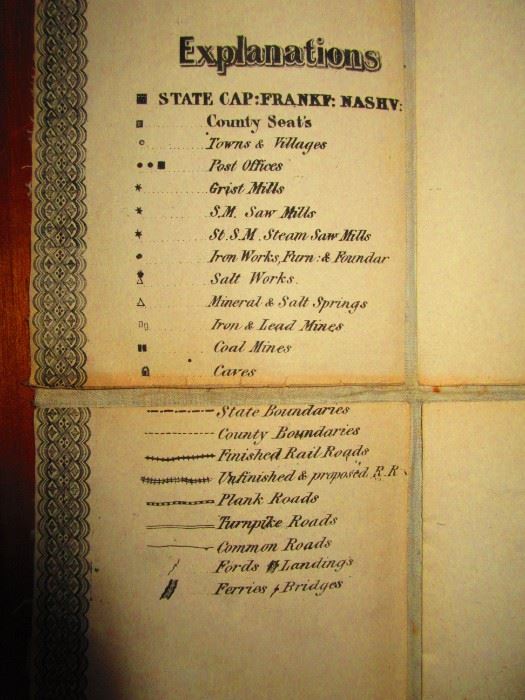 Explanations
STATE CAP: FRANKF: NASHV:
County Seat's
Towns & Villages
Post Offices
Grist Mills
S.M. Saw Mills
St. S.M. Steam Saw Mills
Iron Works, Furn: & Foundar
Salt Works.
Mineral & Salt Springs
Iron & Lead Mines
Coal Mines
Caves
State Boundaries
County Boundaries
Finished Rail Roads
Unfinished & proposed R.R
Plank Roads
Turnpike Roads
Common Roads
Fords & Landings
Ferries & Bridges